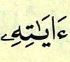 ءَايَـٰتِهِۦ